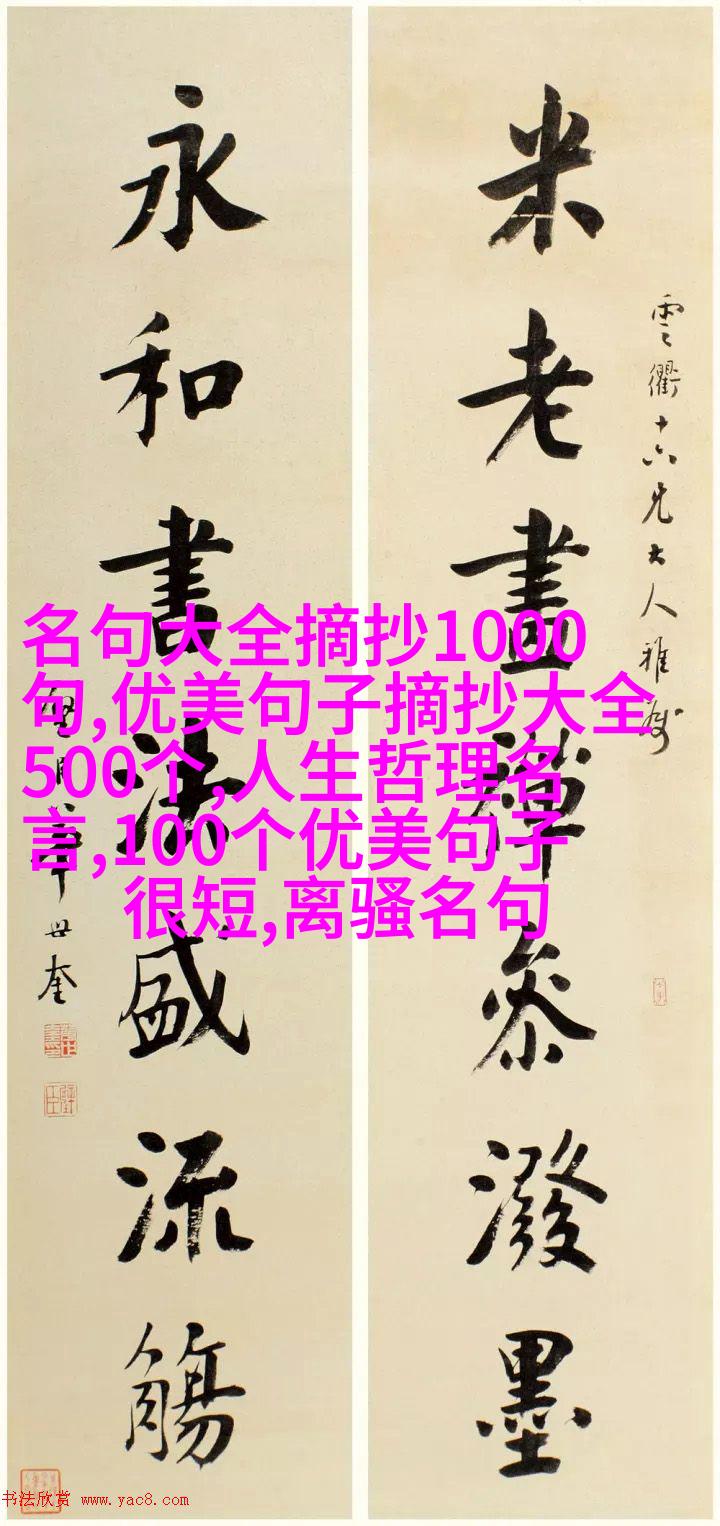 雲衢十六兄大人雅屬
米老畫禪叅潑墨
永和書法盛流觴
華世奎
名句大全摘抄1000
句,优美句子摘抄大全
500个,人生哲理名
言,100个优美句子
很短,离骚名句
书法欣赏 www.yac8.com